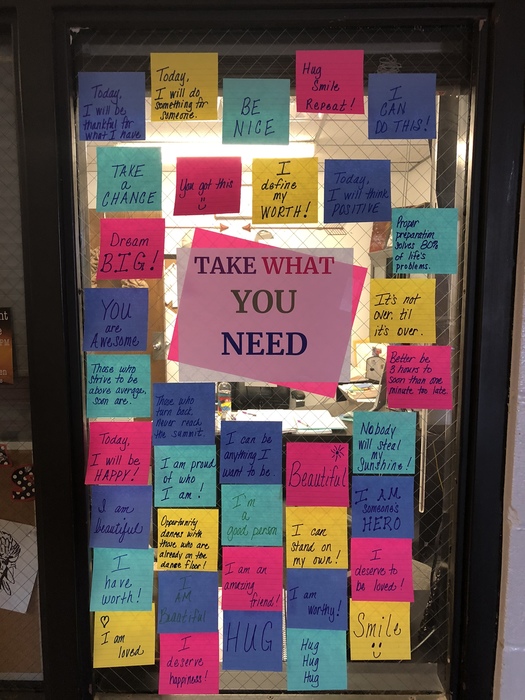 Today,
I will be
thankful for
what I have
Today,
I will do
something for
someone.
BE
NICE
Hug
Smile
Repeat!
I
CAN
DO THIS!
TAKE
a
CHANCE
You got this
I
define
my
WORTH!
Today,
I will think
POSITIVE
Proper
preparation
solves 80%
of life's
problems.
Dream
B.I.G!
TAKE WHAT
YOU
NEED
YOU
are
Awesome
It's not
over, til
it's over.
Those who
strive to be
above average,
soon are.
Better be
3 hours to
soon than one
minute too late.
Those who
turn back,
never reach
the summit.
Today,
I will be
HAPPY!
I am proud
of who
I am!
I can be
anything I
want to be.
Beautiful
Nobody
will steal
my
Sunshine!
I am
beautiful
Opportunity
dances with
those who are
already on the
dance floor!
I'm
a
good person
I can
stand on
my own!
I AM
someone's
HERO
I
have
worth!
I
AM
Beautiful
I am an
amazing
friend!
I am
worthy!
I
deserve to
be loved!
I am
loved
I
deserve
happiness!
HUG
Hug
Hug
Hug
Smile